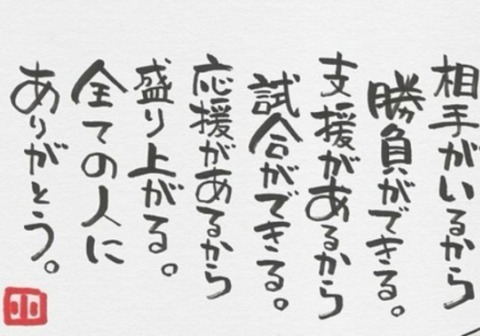 相手がいるから
勝負ができる。
支援があるから
試合ができる。
応援があるから
盛り上がる。
全ての人に
ありがとう。